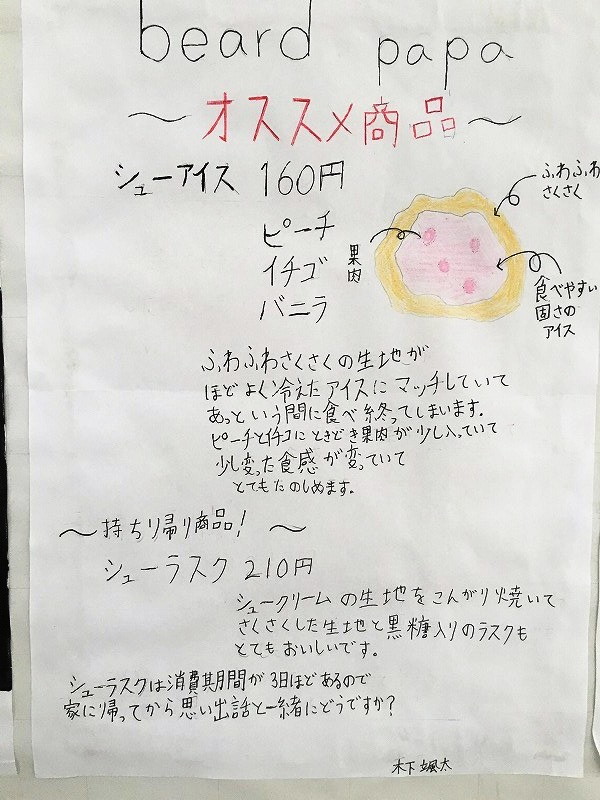 beard papa
～オススメ商品～
シューアイス 160円
ふわふわ
さくさく
ピーチ
イチゴ
バニラ
果肉
食べやすい
固さの
アイス
ふわふわさくさくの生地が
ほどよく冷えたアイスにマッチしていて
あっという間に食べ終ってしまいます。
ピーチとイチゴにときどき果肉が少し入っていて
少し変った食感が変っていて
とてもたのしめます。
～持ち帰り商品!～
シューラスク 210円
シュークリームの生地をこんがり焼いて
さくさくした生地と黒糖入りのラスクも
とてもおいしいです。
シューラスクは消費期間が3日ほどあるので
家に帰ってから思い出話と一緒にどうですか?
木下颯太